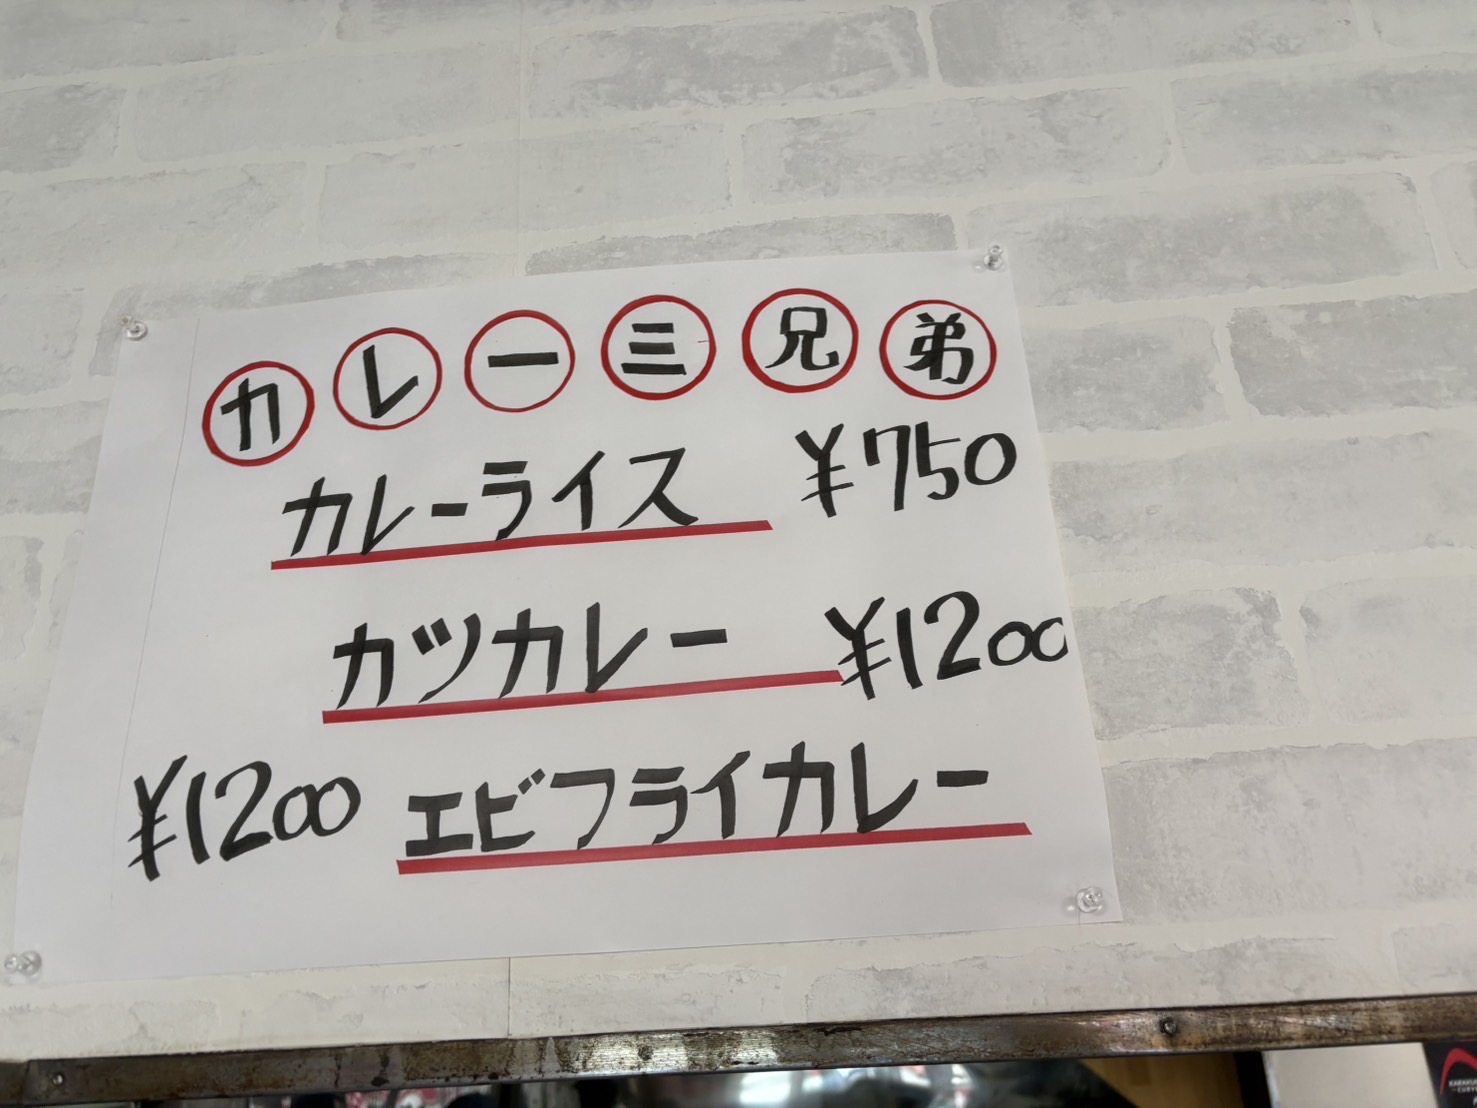 カレー三兄弟
カレーライス ¥750
カツカレー ¥1200
¥1200 エビフライカレー